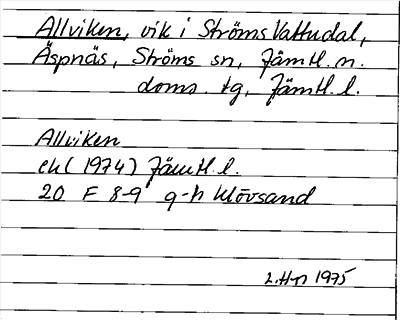 Allviken, vik i Ströms Vattudal,
Äspnäs, Ströms sn, Jämtl. n.
doms. tg, Jämtl. l.
Allviken
ek (1974) Jämtl. l.
20 F 8-9 g-h Klövsand
1975